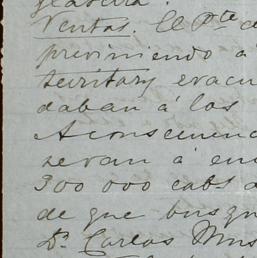 Ventas. El Pte d
previniendo á
territory evacu
daban á los
A consecuenc
servan á en
300 000 cabs d
de que busqu
Dn. Carlos Mus